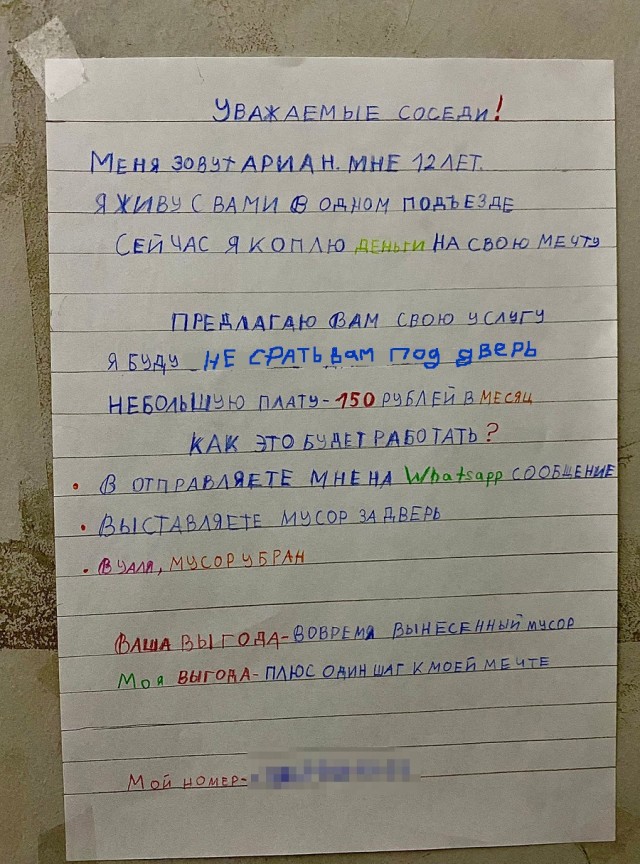 УВАЖАЕМЫЕ СОСЕДИ!
МЕНЯ ЗОВУТ АРИАН. МНЕ 12 ЛЕТ.
Я ЖИВУ С ВАМИ В ОДНОМ ПОДЪЕЗДЕ
СЕЙЧАС Я КОПЛЮ ДЕНЬГИ НА СВОЮ МЕЧТУ
ПРЕДЛАГАЮ ВАМ СВОЮ УСЛУГУ
Я БУДУ НЕ СРАТЬ ВАМ ПОД ДВЕРЬ
НЕБОЛЬШУЮ ПЛАТУ - 150 РУБЛЕЙ В МЕСЯЦ
КАК ЭТО БУДЕТ РАБОТАТЬ?
• В ОТПРАВЛЯЕТЕ МНЕ НА Whatsapp СООБЩЕНИЕ
• ВЫСТАВЛЯЕТЕ МУСОР ЗА ДВЕРЬ
• ВУАЛЯ, МУСОР УБРАН
ВАША ВЫГОДА - ВОВРЕМЯ ВЫНЕСЕННЫЙ МУСОР
МОЯ ВЫГОДА - ПЛЮС ОДИН ШАГ К МОЕЙ МЕЧТЕ
МОЙ НОМЕР -